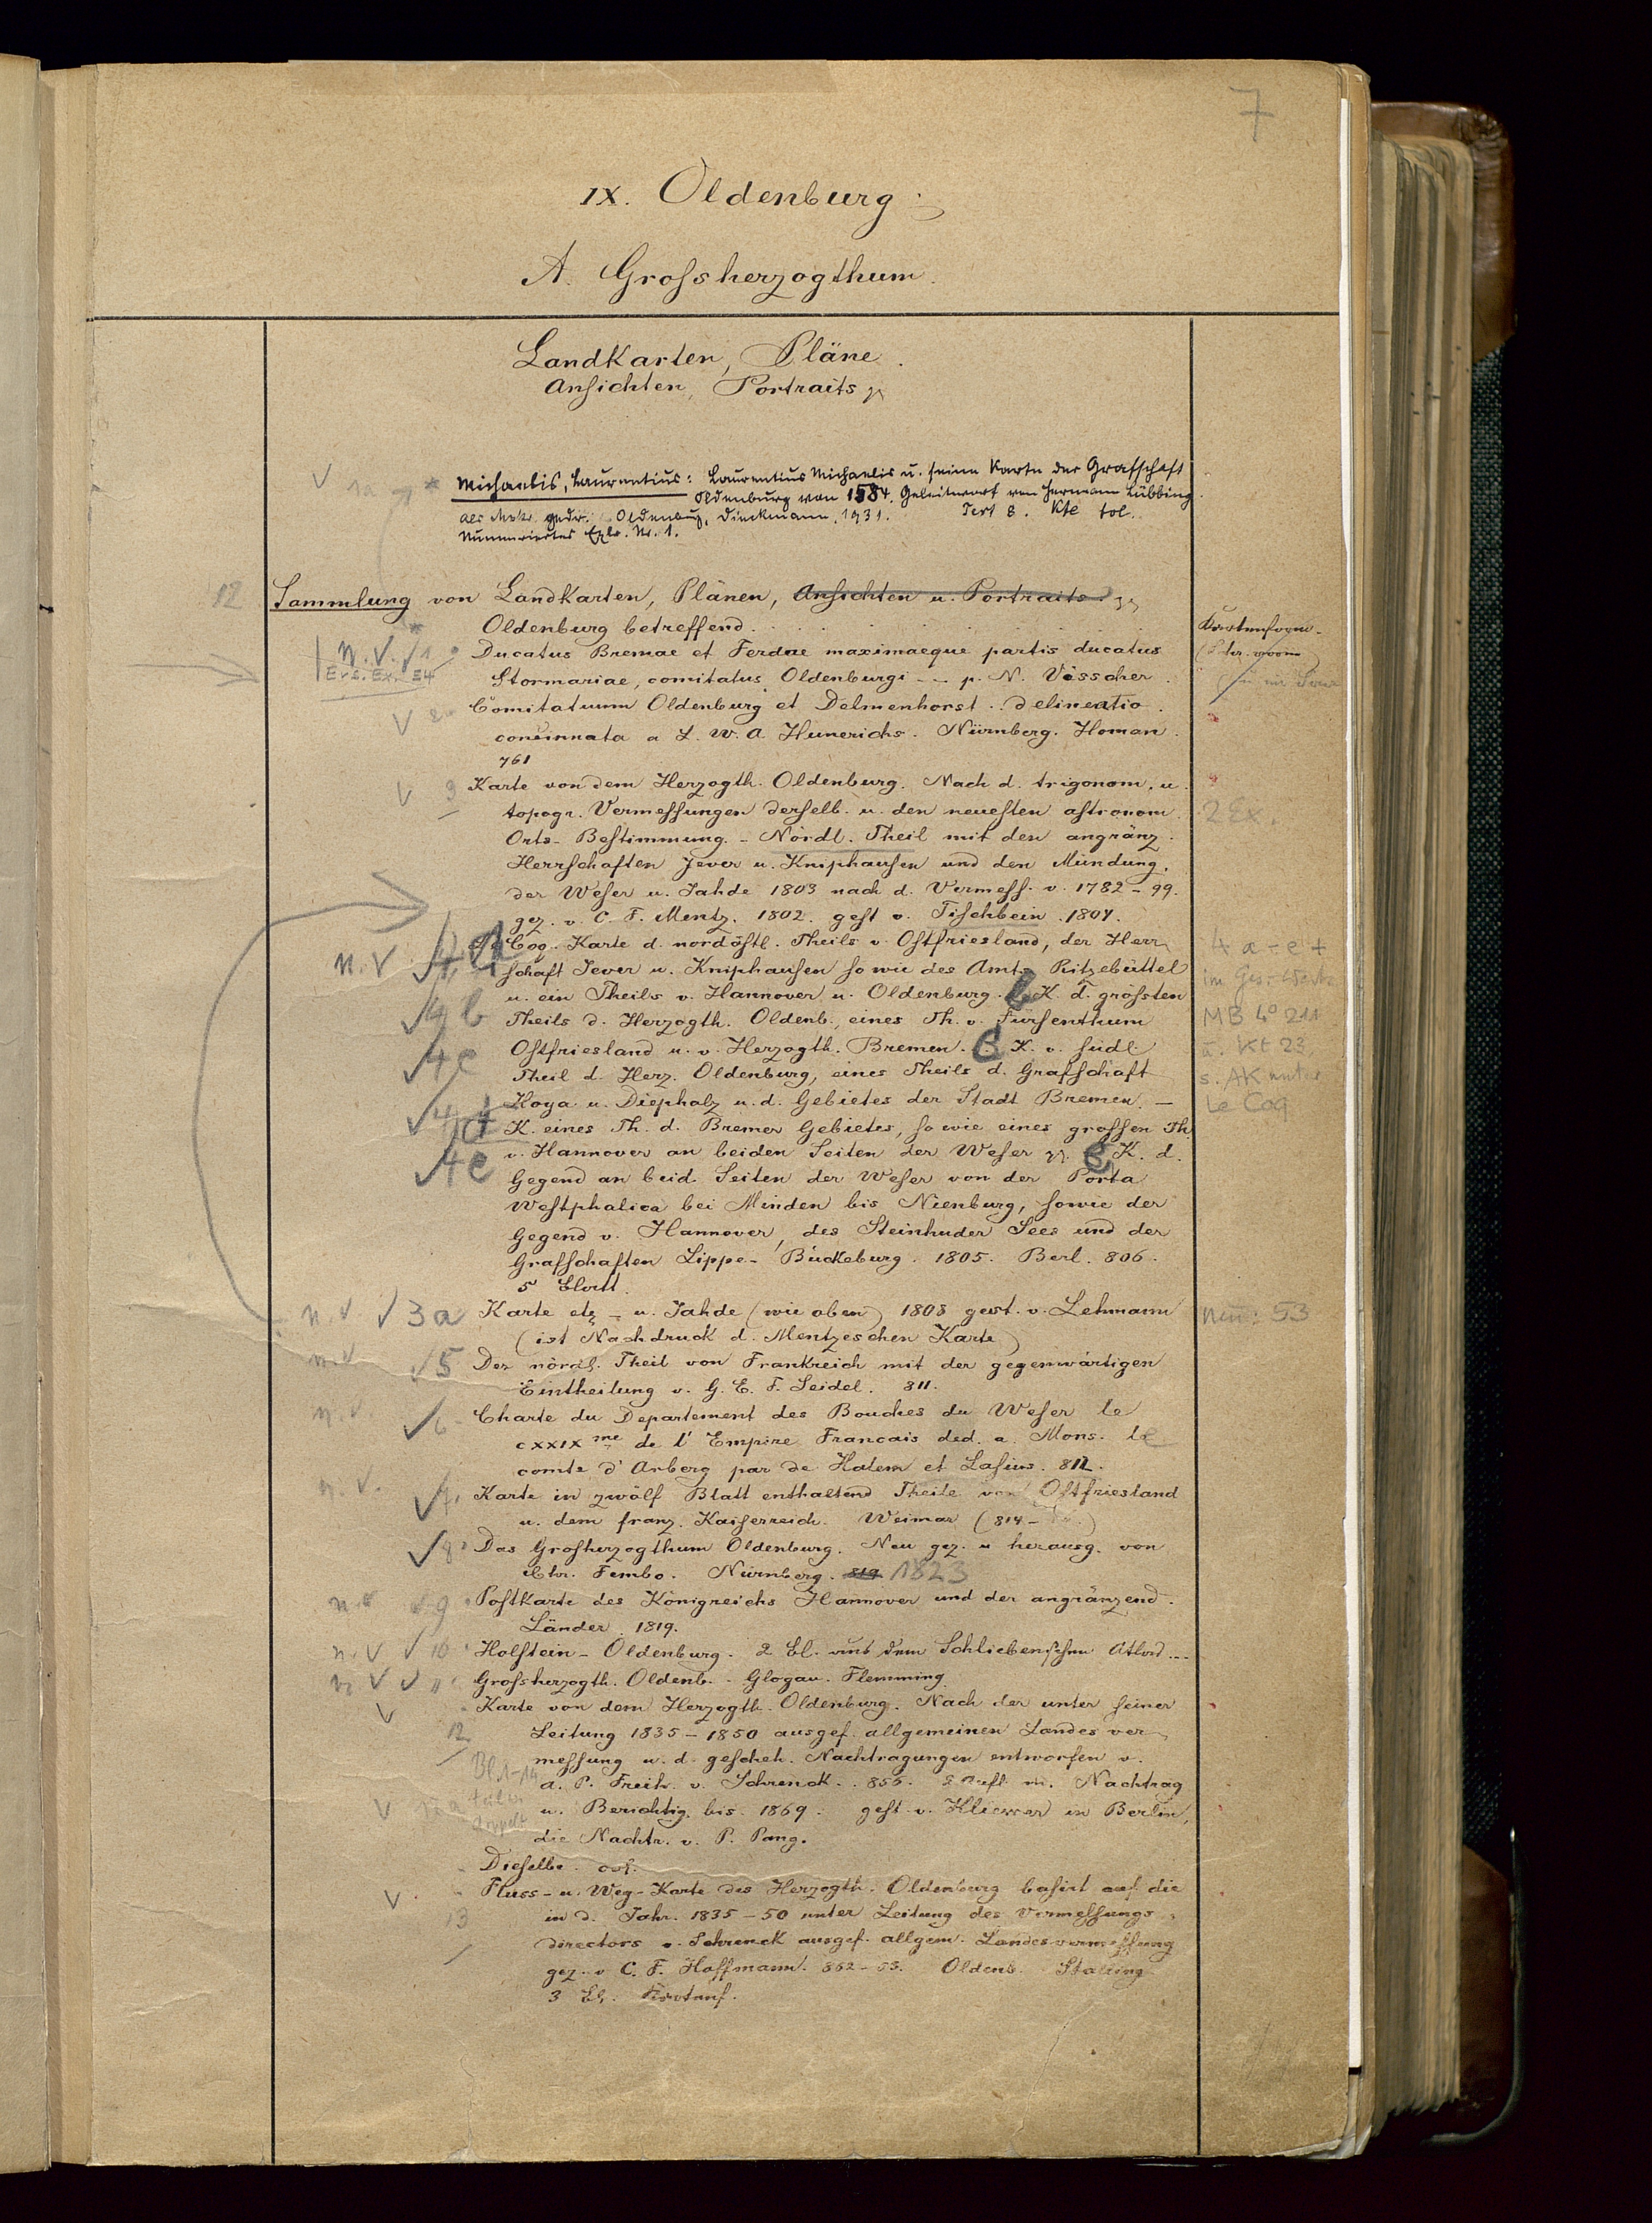 7
IX. Oldenburg.
A. Grofsherzogthum.
Landkarten, Pläne.
Ansichten, Portraits
V 1a
Michaelis, Laurentius: Laurentius Michaelis u. seine Karte der Grafschaft
Oldenburg von 1584. Geleitwort von Hermann Lübbing
als Mskr. gedr. Oldenburg, Dieckmann, 1931. Text 8. Kte fol.
Nummeriertes Expl. Nr. 1.
12 Sammlung von Landkarten, Plänen, Ansichten u. Portraits
Oldenburg betreffend
n. V. √ 1 Ducatus Bremae et Ferdae maximaeque partis ducatus
Ers. Ex. 54 Stormariae, comitatus Oldenburgi - - p. N. Visscher.
V 2 Comitatuum Oldenburg et Delmenhorst .. delineatio
concinnata a L. W. A. Hunerichs. Nürnberg. Homan.
761
V 3 Karte von dem Herzogth. Oldenburg. Nach d. trigonom. u.
topogr. Vermessungen derselb. u. den neuesten astronom. 2 Ex.
Orts-Bestimmung. - Nördl. Theil mit den angränz.
Herrschaften Jever u. Kniphausen und den Mündung.
der Weser u. Jahde 1803 nach d. Vermess. v. 1782-99.
gez. v. C. F. Mentz. 1802. gest v. Tischbein. 1804.
n. V. Le Coq. Karte d. nordöstl. Theils v. Ostfriesland, der Herr- 4 a-e +
schaft Jever u. Kniphausen so wie des Amts Ritzebüttel im Ges.-Werk
u. ein Theils v. Hannover u. Oldenburg. b K. d. grössten
√ 4 b Theils d. Herzogth. Oldenb., eines Th. v. Fürsenthum MB 4° 211
√ 4 c Ostfriesland u. v. Herzogth. Bremen. C K. v. südl. u. Kt 23,
Theil d. Herz. Oldenburg, eines Theils d. Grafschaft s. AK unter
Hoya u. Diepholz u. d. Gebietes der Stadt Bremen. - Le Coq
√ 4 d K. eines Th. d. Bremer Gebietes, so wie eines grossen Th.
√ 4 e v. Hannover an beiden Seiten der Weser e K. d.
Gegend an beid. Seiten der Weser von der Porta
Westphalica bei Minden bis Nienburg, sowie der
Gegend v. Hannover, des Steinhuder Sees und der
Grafschaften Lippe-Bückeburg. 1805. Berl. 806.
5 Blatt.
n. V. √ 3a Karte etz - u. Jahde (wie oben) 1808 gest. v. Lehmann neu: 53
(ist Nachdruck d. Mentzeschen Karte)
n. V. √ 5 Der nördl. Theil von Frankreich mit der gegenwärtigen
Eintheilung v. G. E. F. Seidel. 811.
n. V. √ 6 Charte du Departement des Bouches du Weser le
CXXIX me de l' Empire Francais ded. a. Mons. le
comte d' Arberg par de Halem et Lasius. 812.
n. V. √ 7. Karte in zwölf Blatt enthaltend Theile von Ostfriesland
u. dem franz. Kaiserreich. Weimar (814-
√ 8 Das Grosherzogthum Oldenburg. Neu gez. u herausg. von
Chr. Fembo. Nürnberg. 819 1823
n. V. √ 9 Postkarte des Königreichs Hannover und der angränzend.
Länder. 1819.
n. V √ 10 Holstein-Oldenburg. 2 Bl. aus dem Schliebenschen Atlas
n. V √ 11 Grossherzogth. Oldenb. - Glogau. Flemming
V Karte von dem Herzogth. Oldenburg. Nach der unter seiner
12 Leitung 1835-1850 ausgef. allgemeinen Landes ver-
messung u. d. gescheh. Nachtragungen entworfen v.
Bl. 1-14 A. P. Freih. v. Schrenck. 856. 2 Aufl. m. Nachtrag
V u. Berichtig. bis 1869. gest. v. Kliewer in Berlin,
die Nachtr. v. P. Pang.
Dieselbe.
V Fluss- u. Weg-Karte des Herzogth. Oldenburg basirt auf die
13 in d. Jahr. 1835-50 unter Leitung des Vermessungs-
directors v. Schrenck ausgef. allgem. Landesvermessung
gez. v C. F. Hoffmann. 862-63. Oldenb. Stalling
3 Bl.